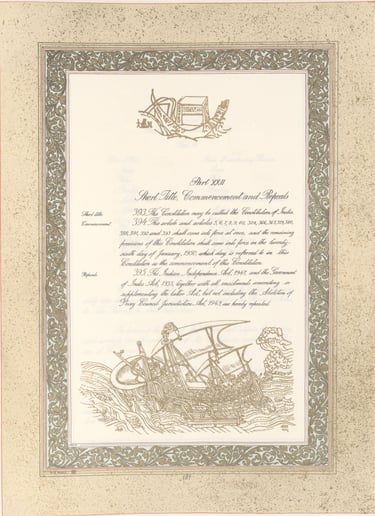 Part XXII
Short Title, Commencement and Repeals
Short title.
393. This Constitution may be called the Constitution of India.
Commencement.
394. This article and articles 5, 6, 7, 8, 9, 60, 324, 366, 367, 379, 380,
388, 391, 392 and 393 shall come into force at once, and the remaining
provisions of this Constitution shall come into force on the twenty-
sixth day of January, 1950, which day is referred to in this
Constitution as the commencement of this Constitution.
Repeals.
395. The Indian Independence Act, 1947, and the Government
of India Act, 1935, together with all enactments amending or
supplementing the latter Act, but not including the Abolition of
Privy Council Jurisdiction Act, 1949, are hereby repealed.